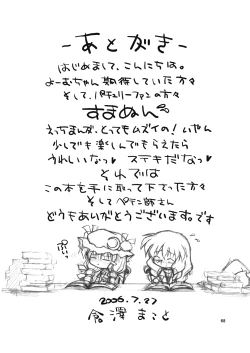 -あとがき-
はじめまして、こんにちは。
よーむちゃん期待していた方々
そして、パチュリーファンの方々
すまぬん
えっちまんが、とってもムズイの！いやん
少しでも楽しんでもらえたら
うれしいなっ♥ ステキだなっ♥
それでは
この本を手に取って下さった方々
そしてペテン師さん
どうもありがとうございます。です
2006.7.27
倉澤まこと